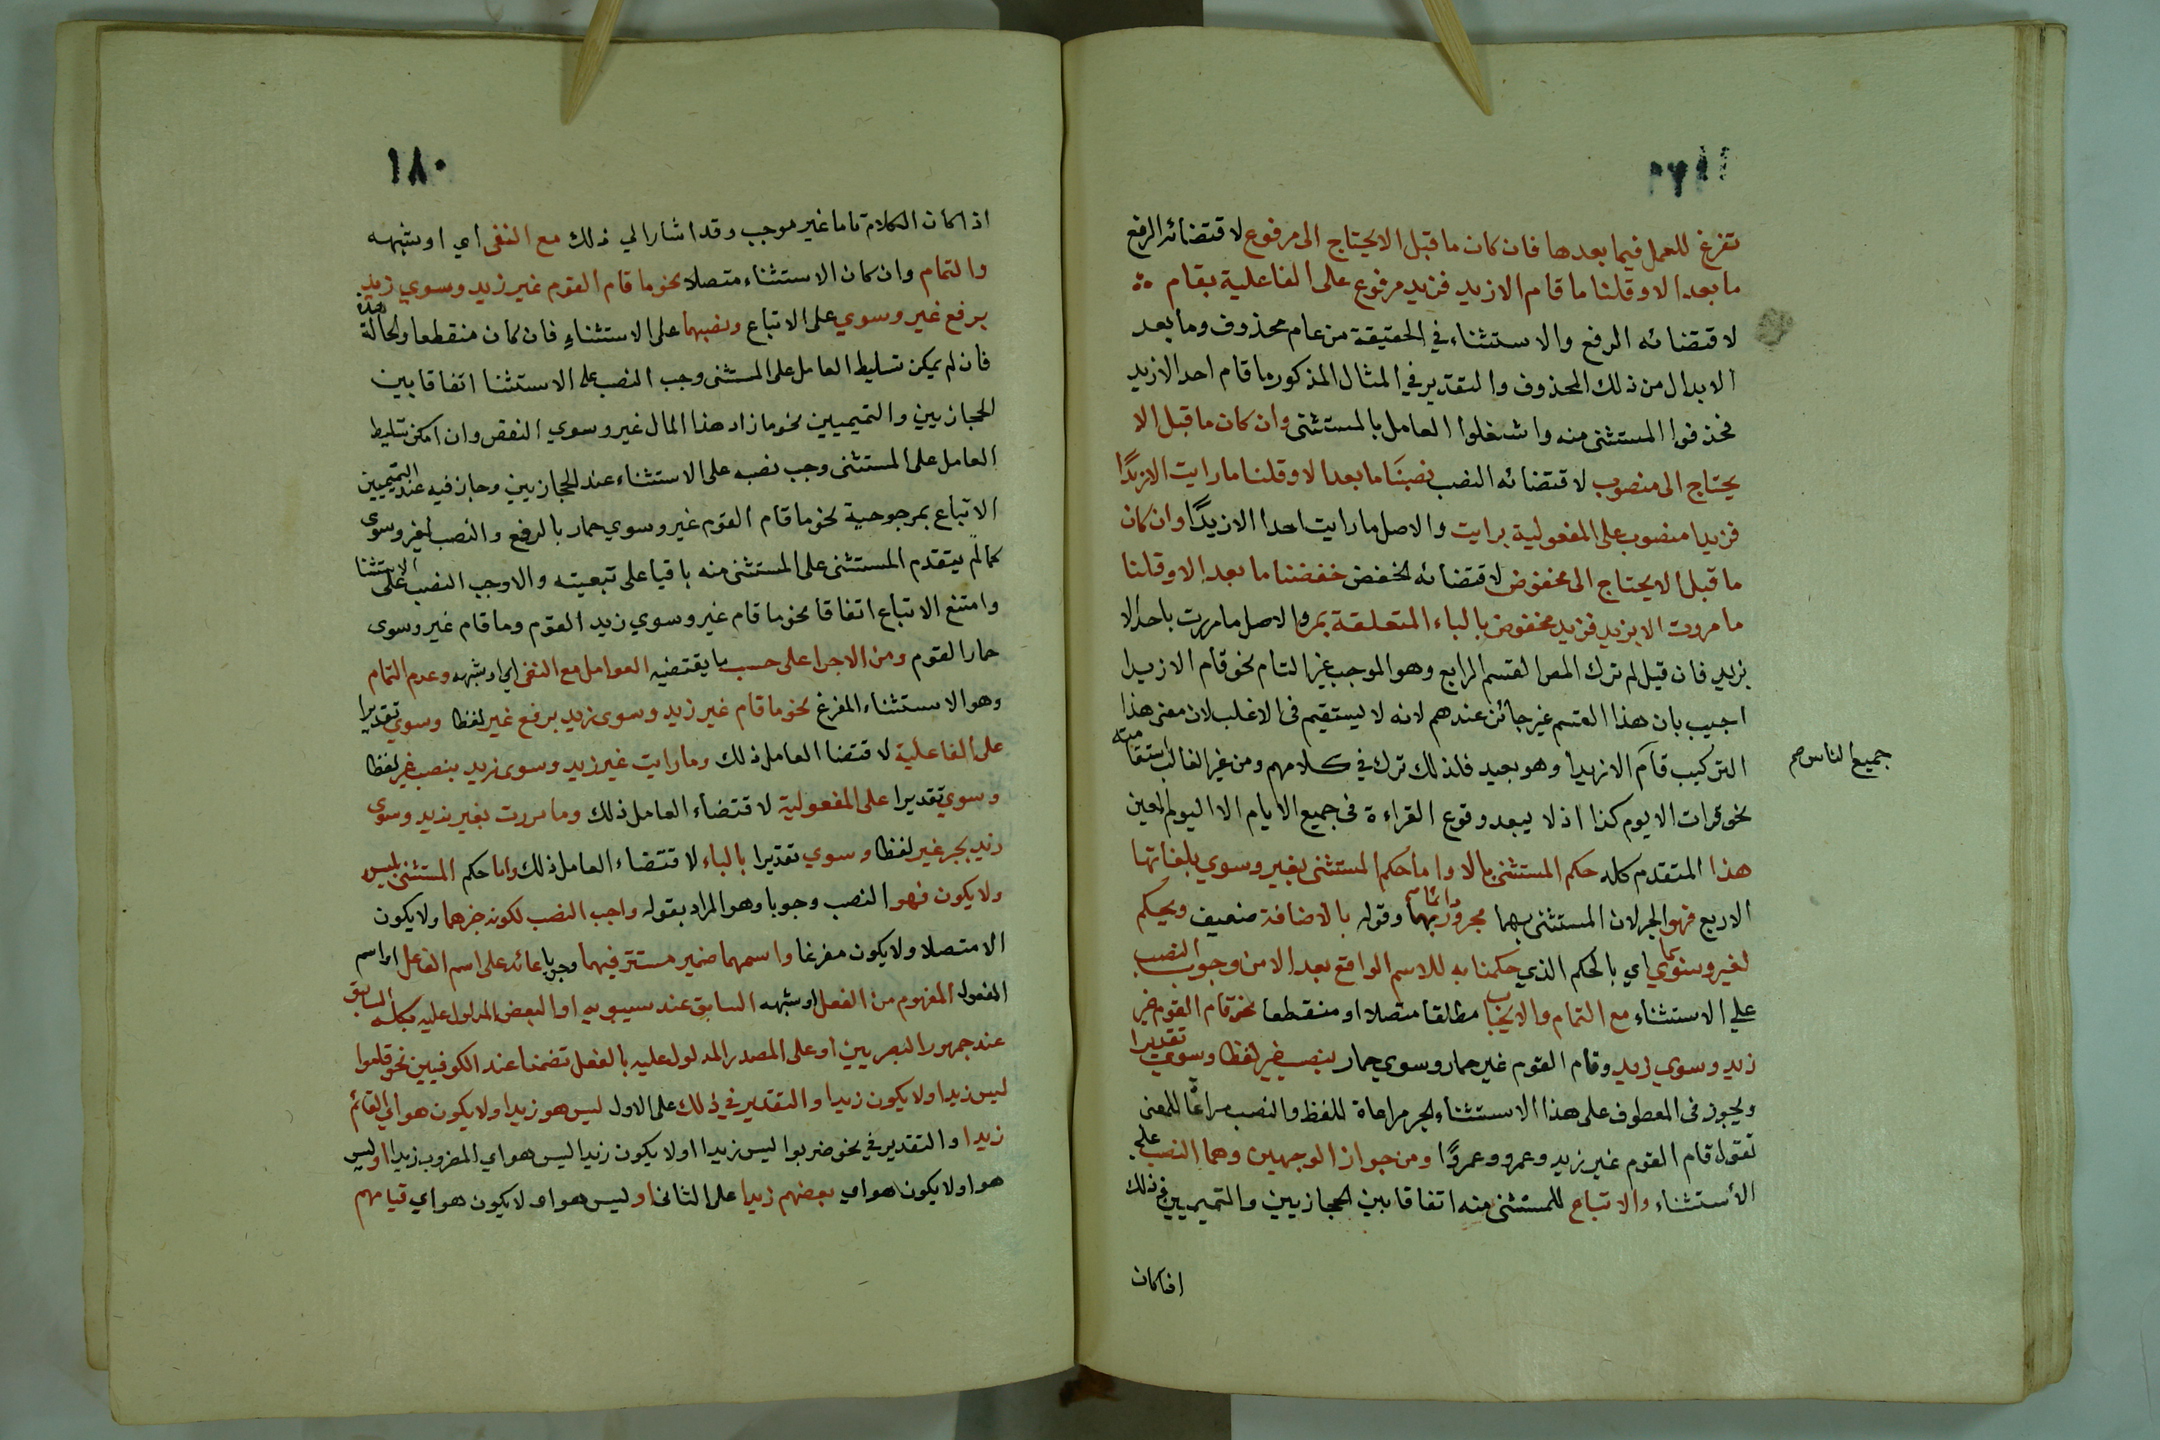 تفرغ للعمل فيما بعدها فان كان ما قبل الا يحتاج الى مرفوع لاقتضائه الرفع
ما بعد الا وقلنا ما قام الا زيد فزيد مرفوع على الفاعلية بقام
لاقتضائه الرفع والاستثناء في الحقيقة من عام محذوف وما بعد
الا بدل من ذلك المحذوف والتقدير في المثال المذكور ما قام احد الا زيد
فحذفوا المستثنى منه واشغلوا العامل بالمستثنى وان كان ما قبل الا
يحتاج الى منصوب لاقتضائه النصب نصبنا ما بعد الا وقلنا ما رايت الا زيدًا
فزيدا منصوب على المفعولية برايت والاصل ما رايت احدا الا زيدًا وان كان
ما قبل الا يحتاج الى مخفوض لاقتضائه الخفض خفضنا ما بعد الا وقلنا
ما مررت الا بزيد فزيد مخفوض بالباء المتعلقة بمر والاصل ما مررت باحد الا
بزيد فان قيل لم ترك المص القسم الرابع وهو الموجب غير التام نحو قام الا زيدا
اجيب بان هذا القسم غير جائز عندهم لانه لا يستقيم في الاغلب لان معنى هذا
التركيب قام الا زيدا وهو بعيد فلذلك ترك في كلامهم ومن غير الغالب استقامته
جميع الناس صح
نحو قرات الا يوم كذا اذ لا يبعد وقوع القراءة في جميع الايام الا اليوم المعين
هذا المتقدم كله حكم المستثنى بالا واما حكم المستثنى بغير وسوي بلغاتها
الاربع فهو الجر لان المستثنى بهما مجرور بهما دائما وقوله بالاضافة ضعيف ويحكم
لغير وسوي بما اي بالحكم الذي حكمنا به للاسم الواقع بعد الا من وجوب النصب
على الاستثناء مع التمام والايجاب مطلقا متصلا او منقطعا نحو قام القوم غير
زيد وسوي زيد وقام القوم غير حمار وسوي حمار بنصب غير لفظا وسوي تقديرا
ويجوز في المعطوف على هذا الاستثناء الجر مراعاة للفظ والنصب مراعًا للمعنى
تقول قام القوم غير زيد وعمرو وعمرًوا ومن جواز الوجهين وهما النصب على
الأستثناء والاتباع للمستثنى منه اتفاقا بين الحجازيين والتميميين في ذلك
اذا كان
١٨٠
اذا كان الكلام تاما غير موجب وقد اشار الي ذلك مع النفى اي او شبهه
والتمام وان كان الاستثناء متصلا نحو ما قام القوم غير زيد وسوي زيد
برفع غير وسوي على الاتباع ونصبهما على الاستثناء فان كان منقطعا والحالة هذه
فان لم يمكن تسليط العامل على المستثنى وجب النصب على الاستثنا اتفاقا بين
الحجازيين والتميميين نحو ما زاد هذا المال غير وسوي النقص وان امكن تسليط
العامل على المستثنى وجب نصبه على الاستثناء عند الحجازيين وجاز فيه عند التميميين
الاتباع بمرجوحية نحو ما قام القوم غير وسوي حمار بالرفع والنصب لغير وسوي
كما لم يتقدم المستثنى على المستثنى منه باقيا على تبعيته والا وجب النصب على الاستثنا
وامتنع الاتباع اتفاقا نحو ما قام غير وسوي زيد القوم وما قام غير وسوى
حمار القوم ومن الاجرا على حسب ما يقتضيه العوامل مع النفى اي او شبهه وعدم التمام
وهو الاستثناء المفرغ نحو ما قام غير زيد وسوى زيد برفع غير لفظا وسوي تقديرا
على الفاعلية لاقتضا العامل ذلك وما رايت غير زيد وسوى زيد بنصب غير لفظا
وسوي تقديرا على المفعولية لاقتضاء العامل ذلك وما مررت بغير زيد وسوي
زيد بجر غير لفظا وسوي تقديرا بالباء لاقتضاء العامل ذلك واما حكم المستثنى بليس
ولا يكون فهو النصب وجوبا وهو المراد بقوله واجب النصب لكونه خبرهما ولا يكون
الا متصلا ولا يكون مفرغا واسمهما ضمير مستتر فيهما وجوبا عائد على اسم الفاعل او اسم
المفعول المفهوم من الفعل او شبهه السابق عند سيبويه او البعض المدلول عليه بكله السابق
عند جمهور البصريين او على المصدر المدلول عليه بالفعل تضمنا عند الكوفيين نحو قاموا
ليس زيدا ولا يكون زيدا والتقدير في ذلك على الاول ليس هو زيدا ولا يكون هو اي القائم
زيدا والتقدير في نحو ضربوا ليس زيدا او لا يكون زيدا ليس هو اي المضروب زيدا او ليس
هو او لا يكون هو اي بعضهم زيدا على الثاني او ليس هو او لا يكون هو اي قيامهم